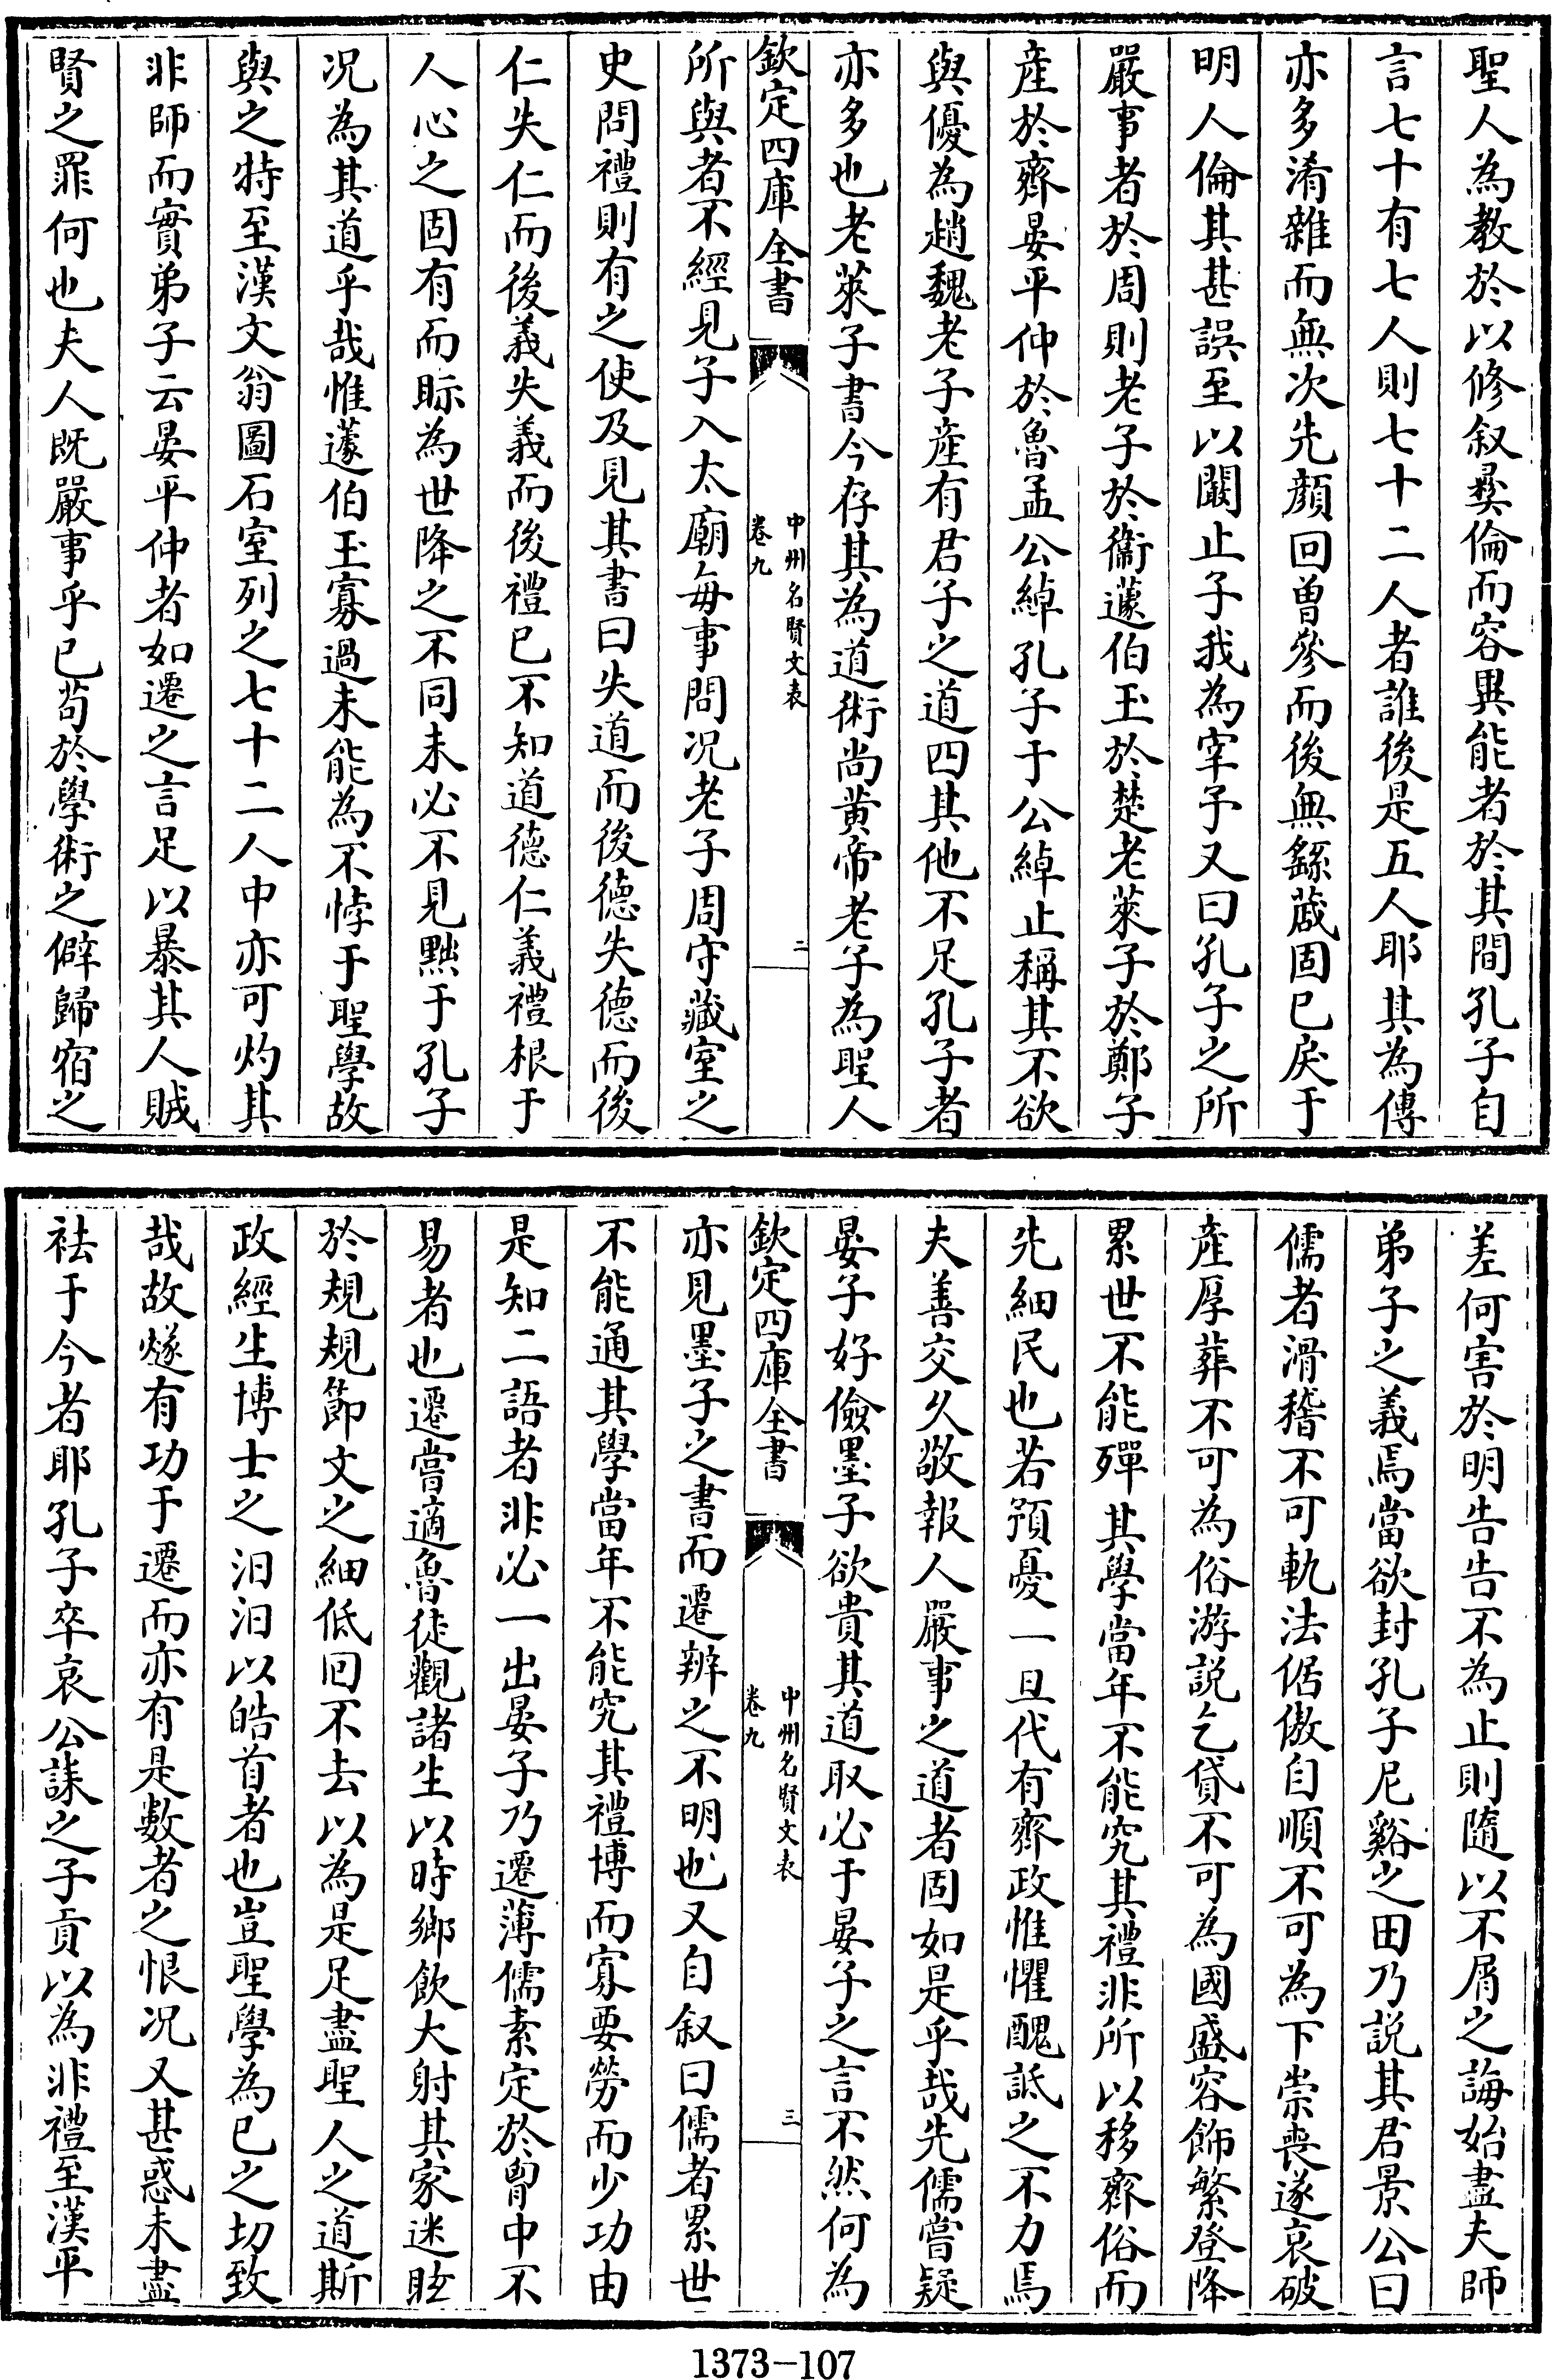 聖人為教於以修叙彛倫而容異能者於其間孔子自
言七十有七人則七十二人者誰後是五人耶其為傳
亦多淆雜而無次先顔回曾參而後無繇蒧固已戾于
明人倫其甚誤至以闞止子我為宰予又曰孔子之所
嚴事者於周則老子於衞蘧伯玉於楚老萊子於鄭子
産於齊晏平仲於魯孟公綽孔子于公綽止稱其不欲
與優為趙魏老子産有君子之道四其他不足孔子者
亦多也老萊子書今存其為道術尚黄帝老子為聖人
欽定四庫全書
中州名賢文表
卷九
二
所與者不經見子入太廟每事問况老子周守藏室之
史問禮則有之使及見其書曰失道而後德失德而後
仁失仁而後義失義而後禮已不知道德仁義禮根于
人心之固有而眎為世降之不同未必不見黜于孔子
况為其道乎哉惟蘧伯玉寡過未能為不悖于聖學故
與之特至漢文翁圖石室列之七十二人中亦可灼其
非師而實弟子云晏平仲者如遷之言足以暴其人賊
賢之罪何也夫人既嚴事乎已苟於學術之僻歸宿之
差何害於明告告不為止則隨以不屑之誨始盡夫師
弟子之義焉當欲封孔子尼谿之田乃説其君景公曰
儒者滑稽不可軌法倨傲自順不可為下崇喪遂哀破
産厚葬不可為俗游説乞貸不可為國盛容飾繁登降
累世不能殫其學當年不能究其禮非所以移齊俗而
先細民也若預憂一旦代有齊政惟懼醜詆之不力焉
夫善交久敬報人嚴事之道者固如是乎哉先儒嘗疑
晏子好儉墨子欲貴其道取必于晏子之言不然何為
欽定四庫全書
中州名賢文表
卷九
三
亦見墨子之書而遷辨之不明也又自叙曰儒者累世
不能通其學當年不能究其禮博而寡要勞而少功由
是知二語者非必一出晏子乃遷薄儒素定於胷中不
易者也遷嘗適魯徒觀諸生以時鄉飲大射其家迷眩
於規規節文之細低回不去以為是足盡聖人之道斯
政經生博士之汨汨以皓首者也豈聖學為已之切致
哉故燧有功于遷而亦有是數者之恨况又甚惑未盡
祛于今者耶孔子卒哀公誄之子貢以為非禮至漢平
1373-107